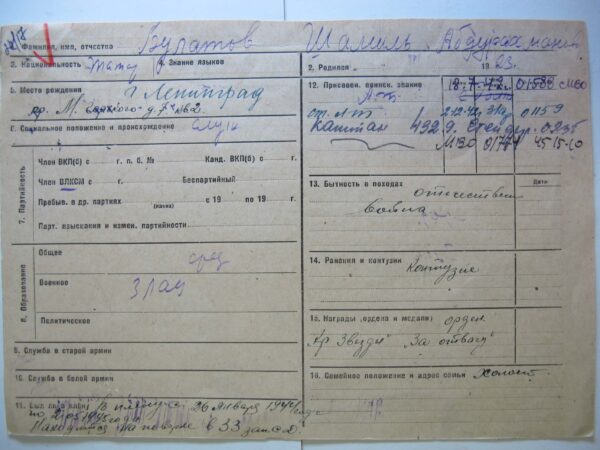 1. Фамилия, имя, отчество Булатов Шамиль Абдурахманов
3. Национальность татар 4. Знание языков
2. Родился 23.
5. Место рождения г. Ленинград
пр. М. Горького д. 7 кв 2.
6. Социальное положение и происхождение служ
7. Партийность
Член ВКП(б) с г. п. б. № Канд. ВКП(б) с г.
Член ВЛКСМ с г. Беспартийный
Пребыв. в др. партиях (каких) с 19 по 19 г.
Парт. взыскания и измен. партийности
8. Образование
Общее сред
Военное
Политическое
9. Служба в старой армии
10. Служба в белой армии
11. Был ли в плену В плену с 26 января 194 года
по 1945 года
Находится на поверке в 33 зап. С.Д.
12. Присвоен. воинск. звание 18.7.42. МВО
ст. Л-т 2-12-42 01159
капитан
МВО 45-15-10
13. Бытность в походах Даты
отечествен
война
14. Ранения и контузии
Контузие
15. Награды (ордена и медали) орден
"Кр Звезды" "За отвагу"
16. Семейное положение и адрес семьи холост